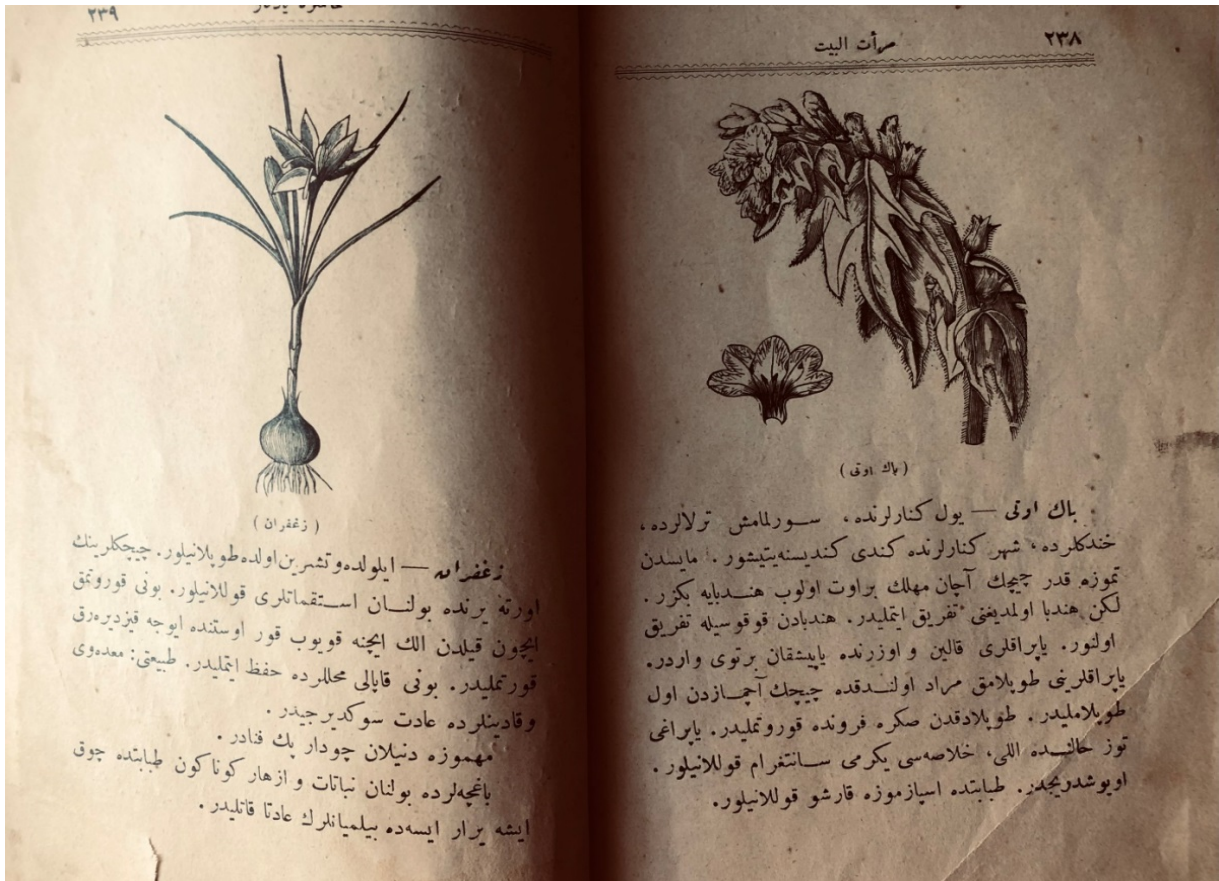 ٢٣٨
مرأت البيت
( باك اوتى )
باك اوتى — يول كنارلرنده، سورلمامش ترلالرده،
خندكلرده، شهر كنارلرنده كندى كنديسنه‌يتيشور. مايسدن
تموزه قدر چيچك آچان مهلك براوت اولوب هندبايه بكزر.
لكن هندبا اولمديغنى تفريق ايتمليدر. هندبادن قوقوسيله تفريق
اولنور. ياپراقلرى قالين و اوزرنده ياپيشقان برتوى واردر.
ياپراقلرينى طوپلامق مراد اولندقده چيچك آچمازدن اول
طوپلامليدر. طوپلادقدن صكره فرونده قوروتمليدر. ياپراغى
توز حالنده اللى، خلاصه‌سى يكرمى سانتغرام قوللانيلور.
اويوشديريجدر. طبابتده اسپازموزه قارشو قوللانيلور.
٢٣٩
( زغفران )
زغفران — ايلولده‌و تشرين‌اولده‌طوپلانيلور. چيچكلرينك
اورته يرنده بولنان استقماتلرى قوللانيلور. بونى قوروتمق
ايچون قيلدن الك ايچنه قويوب قور اوستنده ايوجه قيزديره‌رق
قورتمليدر. بونى قاپالى محللرده حفظ ايتمليدر. طبيعتى: معده‌وى
وقادينلرده عادت سوكديرجيدر.
مهموزه دنيلان چودار پك فنادر.
باغچه‌لرده بولنان نباتات و ازهار كوناكون طبابتده چوق
ايشه يرار ايسه‌ده بيلميانلرك عادتا قاتليدر.